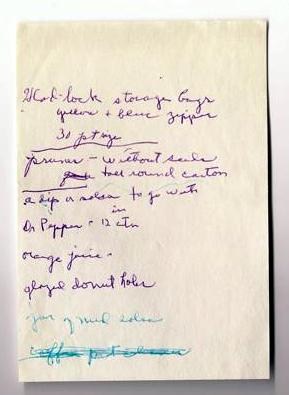 Glad-lock storage bags
yellow + blue zipper
30 pt size
prunes - without seeds
tall round carton
a dip or salsa to go with
in
Dr Pepper - 12 ctn
orange juice -
glazed donut holes
jar of med salsa
coffee pot cleaner